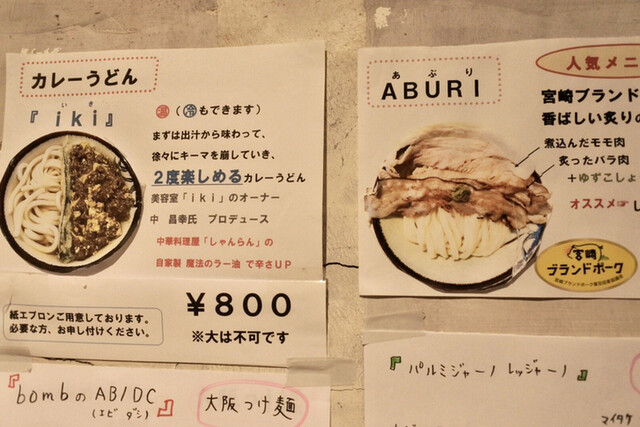 カレーうどん
いき
『iki』
温(冷もできます)
まずは出汁から味わって、
徐々にキーマを崩していき、
2度楽しめるカレーうどん
美容室「iki」のオーナー
中 昌幸氏 プロデュース
中華料理屋「しゃんらん」の
自家製 魔法のラー油 で辛さUP
紙エプロンご用意しております。
必要な方、お申し付けください。
¥800
※大は不可です
『bombのAB/DC』
(エビ ダシ)
大阪つけ麺
あぶり
ABURI
人気メニ
宮崎ブランド
香ばしい炙りの
煮込んだモモ肉
炙ったバラ肉
+ゆずこしょ
オススメ☞し
宮崎
ブランドポーク
『パルミジャーノ レッジャーノ』
マイタケ